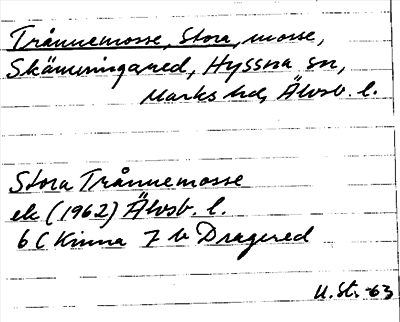 Trånnemosse, Stora, mosse,
Skämningared, Hyssna sn,
Marks hd, Älvsb. l.
Stora Trånnemosse
ek (1962) Älvsb. l.
6 C Kinna 7 b Dragered
U.St. -63